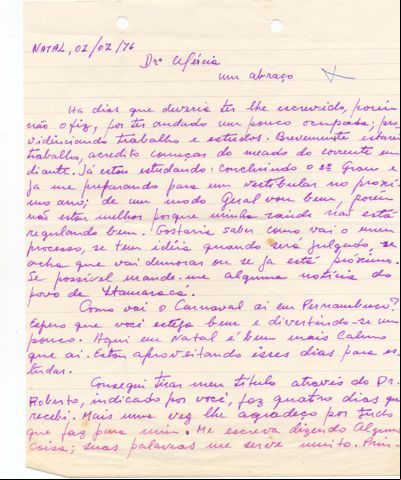 NATAL, 01/07/76
Drª Mércia
um abraço
Ha dias que deveria ter lhe escrevido, porém
não o fiz, por ter andado um pouco ocupada; pro-
videnciando trabalho e estudos. Brevemente estarei
trabalho, acredito começar do meado do corrente em
diante. Já estou estudando: concluindo o 2º Grau e
ja me preparando para um vestibular no proxi-
mo ano; de um modo Geral vou bem, porém
não estou melhor porque minha saúde não está
regulando bem. Gostaria saber como vai o meu
processo, se tem idéia quando será julgado, se
acha que vai demorar ou se ja está próximo.
Se possível mande-me alguma notícia do
povo de Itamaracá.
Como vai o Carnaval ai em Pernambuco?
Espero que você esteja bem e divertindo-se um
pouco. Aqui em Natal é bem mais Calmo
que ai. Estou aproveitando esses dias para es-
tudar.
Consegui tirar meu título através do Dr.
Roberto, indicado por você, faz quatro dias que
recebi. Mais uma vez lhe agradeço por tudo
que faz para mim. Me escreva dizendo Alguma
Coisa; suas palavras me serve muito. Prin-